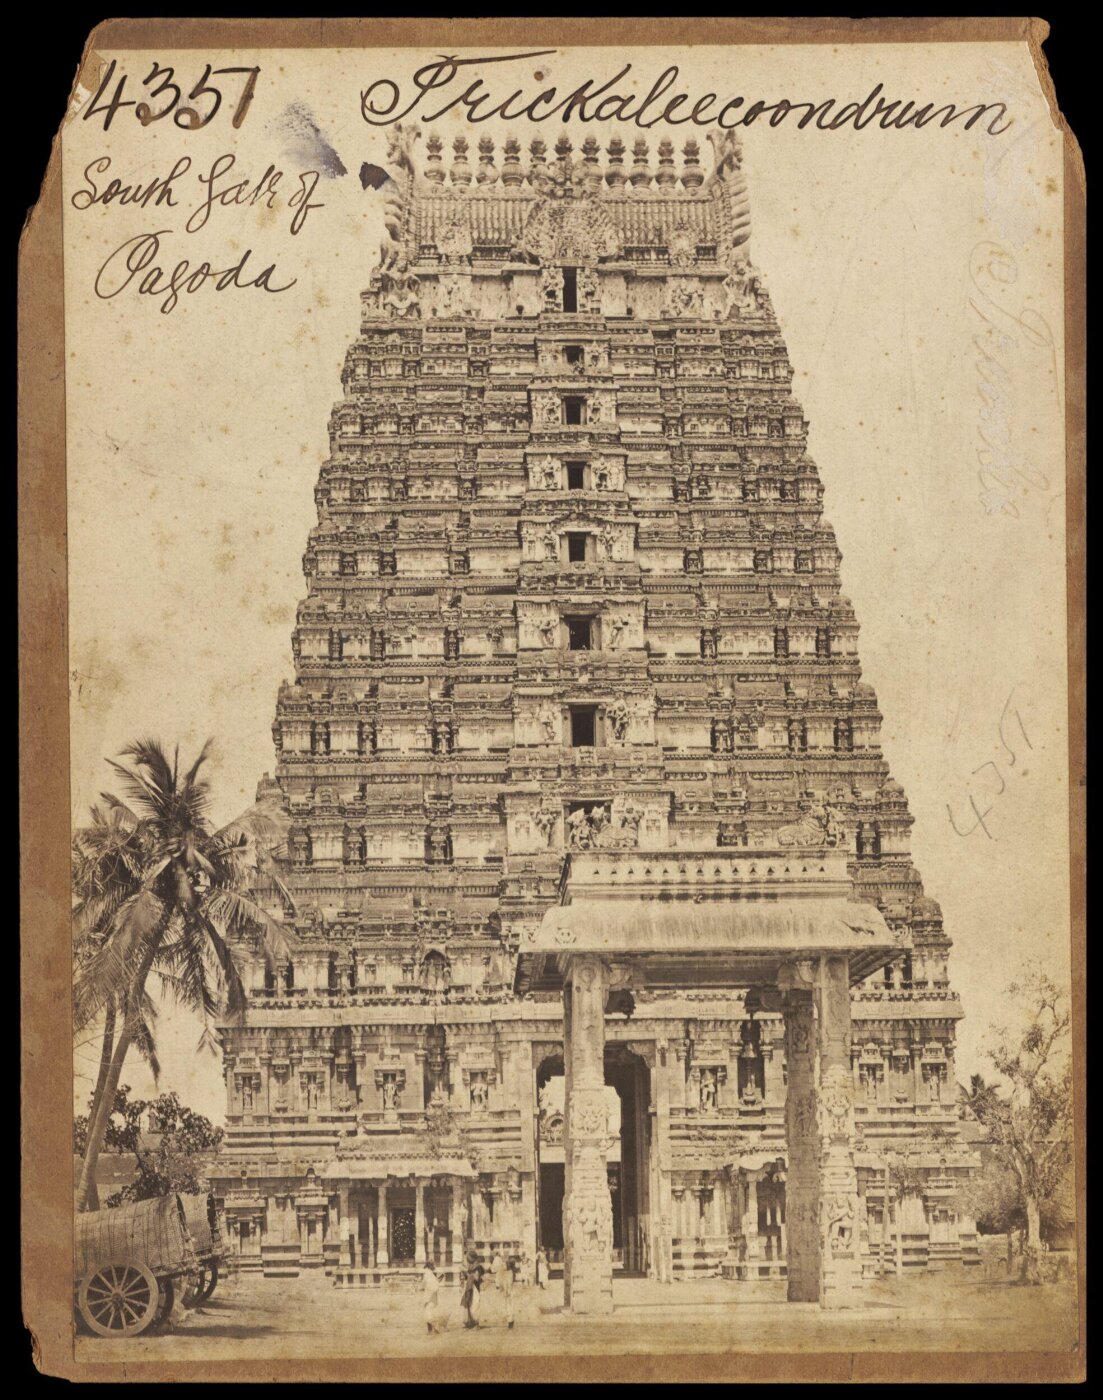 4351
Trickaleecoondrum
South Gate of
Pagoda
4351